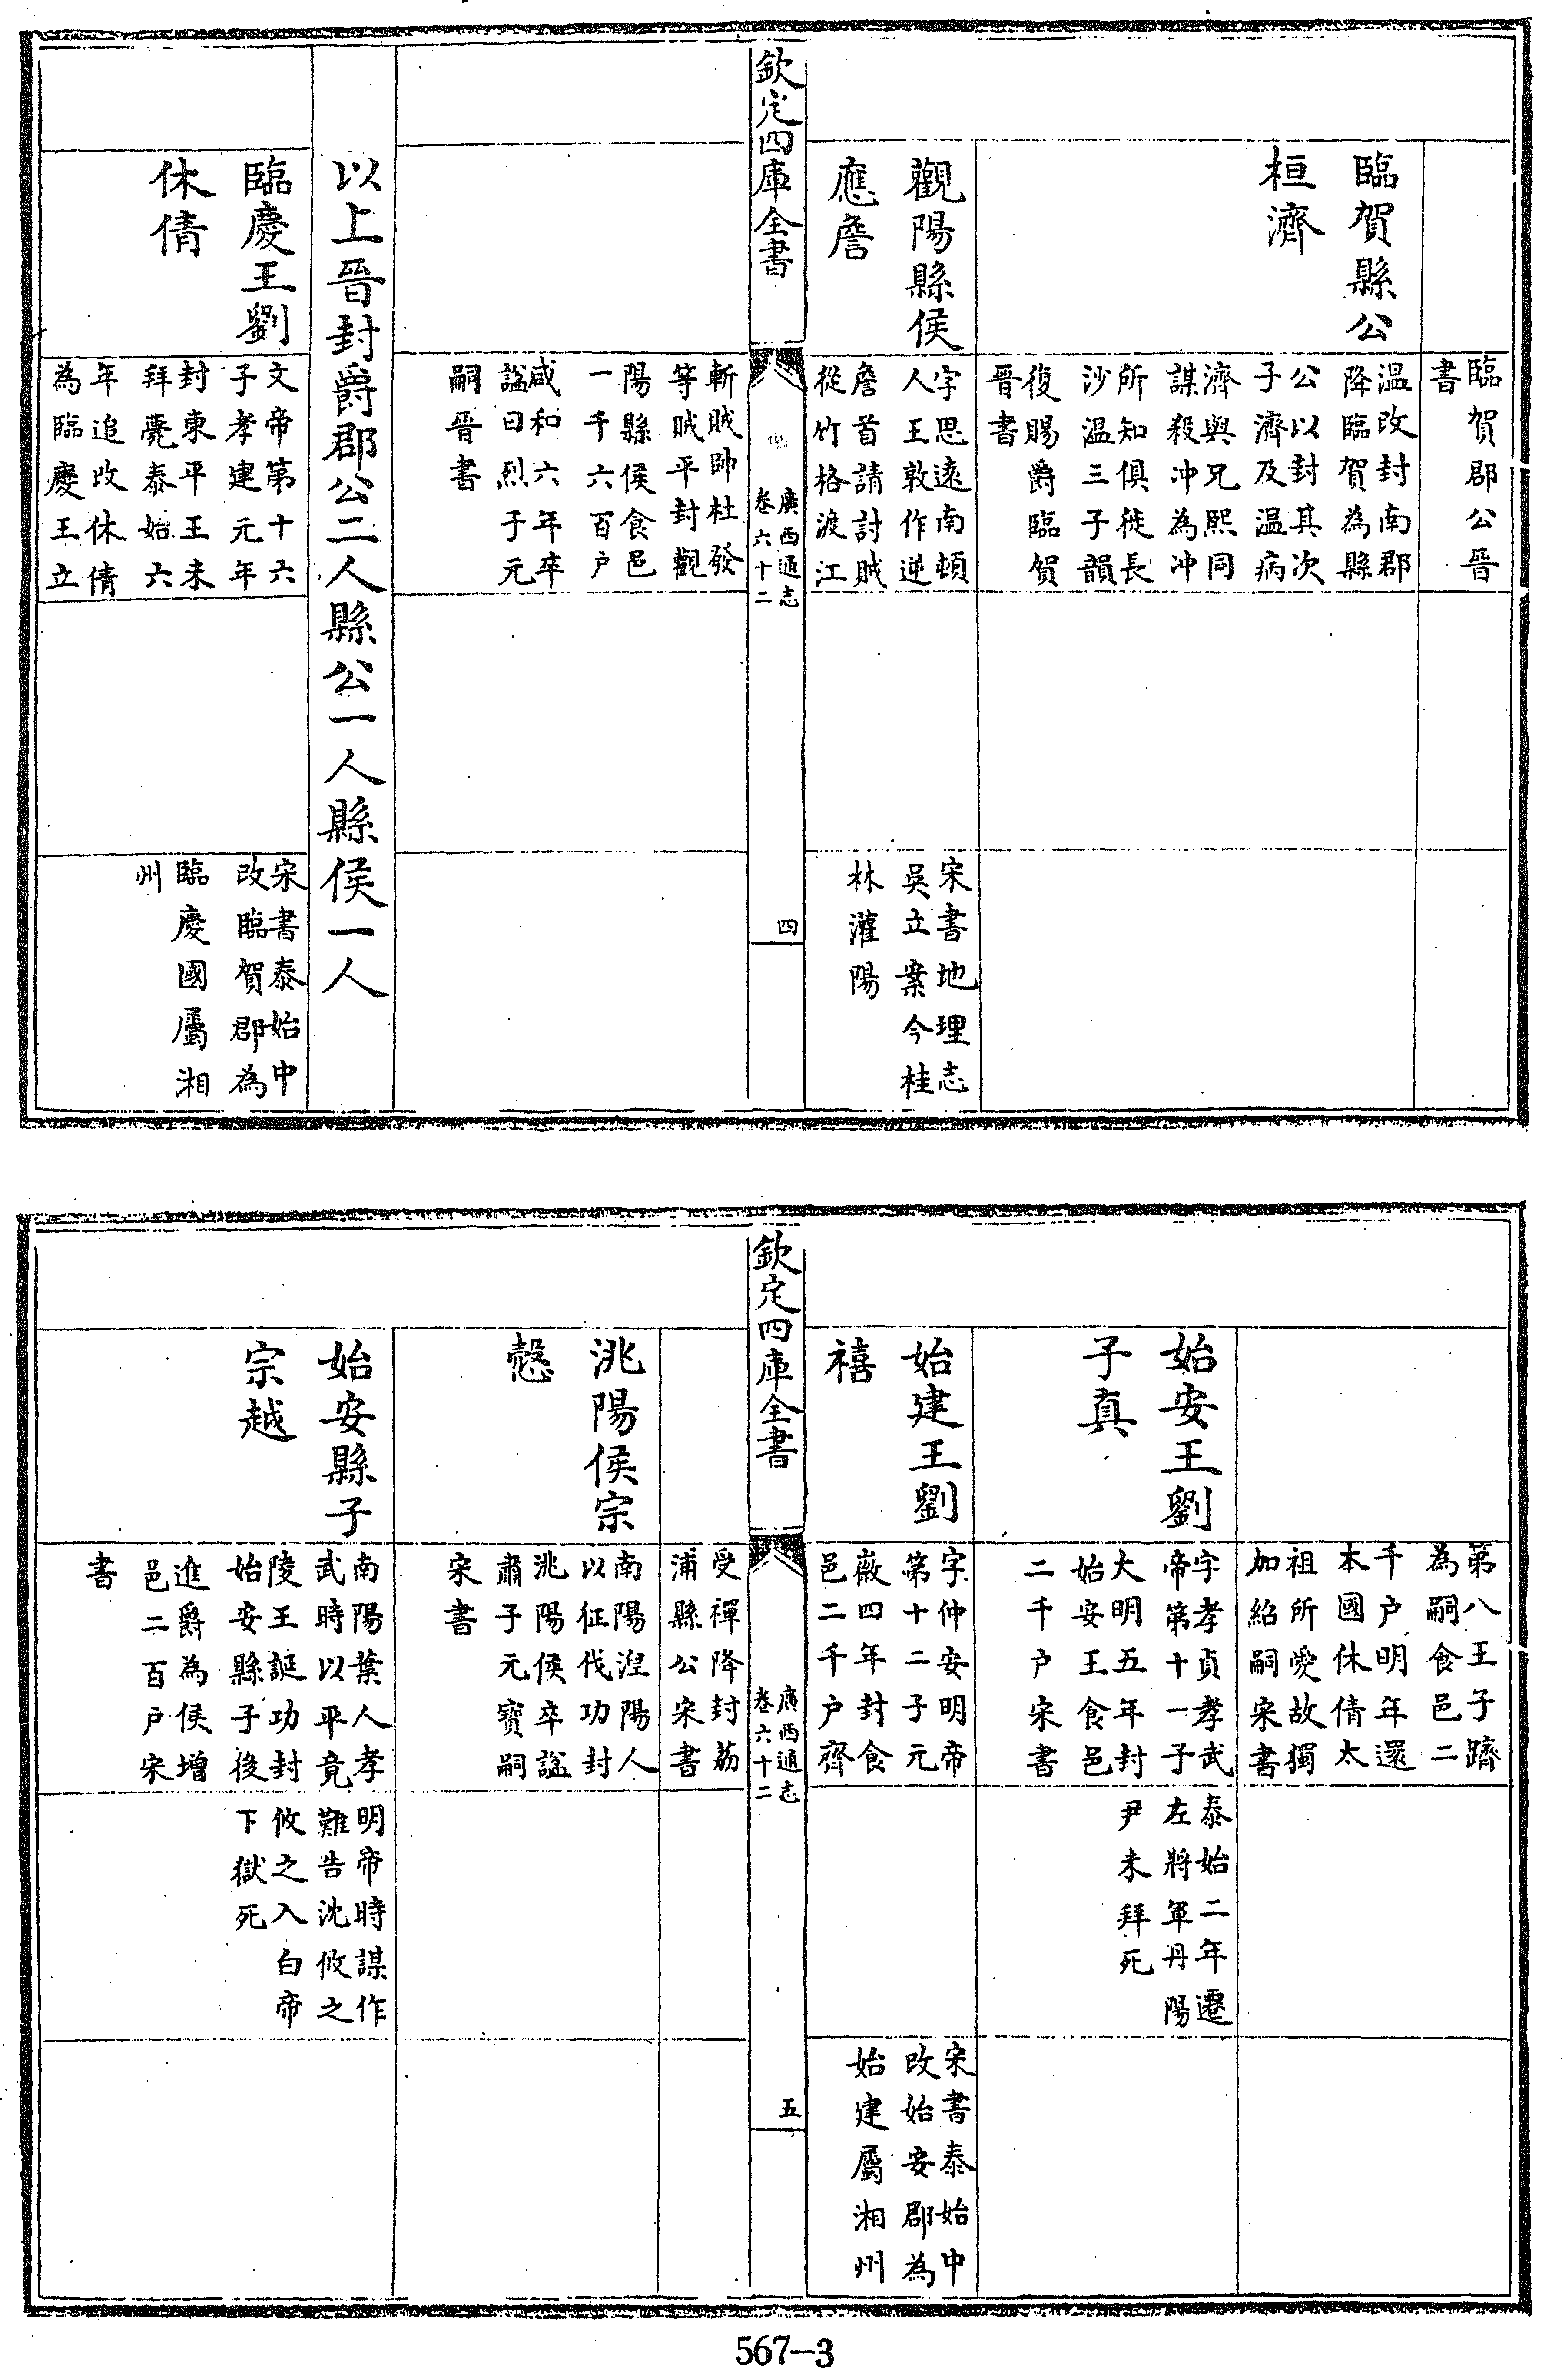 臨賀郡公晉
書
臨賀縣公
桓濟
温改封南郡
降臨賀為縣
公以封其次
子濟及温病
濟與兄熙同
謀殺冲為冲
所知俱徙長
沙温三子韻
復賜爵臨賀
晉書
觀陽縣侯
應詹
字思遠南頓
人王敦作逆
詹首請討賊
從竹格渡江
宋書地理志
吳立案今桂
林灌陽
欽定四庫全書
廣西通志
卷六十二
四
斬賊帥杜發
等賊平封觀
陽縣侯食邑
一千六百户
咸和六年卒
諡曰烈子元
嗣晉書
以上晉封爵郡公二人縣公一人縣侯一人
臨慶王劉
休倩
文帝第十六
子孝建元年
封東平王未
拜薨泰始六
年追改休倩
為臨慶王立
宋書泰始中
改臨賀郡為
臨慶國屬湘
州
第八王子躋
為嗣食邑二
千户明年還
本國休倩太
祖所愛故獨
加紹嗣宋書
始安王劉
子真
字孝貞孝武
帝第十一子
大明五年封
始安王食邑
二千户宋書
泰始二年遷
左將軍丹陽
尹未拜死
始建王劉
禧
字仲安明帝
第十二子元
嶶四年封食
邑二千户齊
宋書泰始中
改始安郡為
始建屬湘州
欽定四庫全書
廣西通志
卷六十二
五
受禪降封荔
浦縣公宋書
洮陽侯宗
慤
南陽湼陽人
以征伐功封
洮陽侯卒諡
肅子元寳嗣
宋書
始安縣子
宗越
南陽葉人孝
武時以平竟
陵王誕功封
始安縣子後
進爵為侯增
邑二百户宋
書
明帝時謀作
難告沈攸之
攸之入白帝
下獄死
567-3